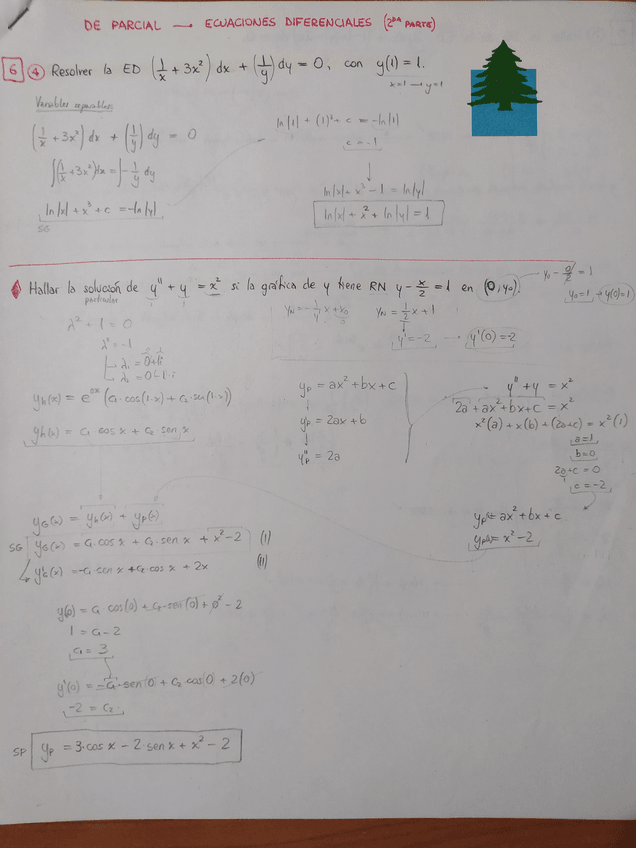 DE PARCIAL → ECUACIONES DIFERENCIALES (2DA PARTE)
6 4 Resolver la ED (1/x + 3x²) dx + (1/y) dy = 0, con y(1) = 1.
x=1 → y=1
Variables separables
(1/x + 3x²) dx + (1/y) dy = 0
∫(1/x + 3x²)dx = ∫-1/y dy
ln|x| + x³ + c = -ln|y|
SG
ln|1| + (1)³ + c = -ln|1|
c = -1
ln|x| + x³ - 1 = ln|y|
ln|x| + x² + ln|y| = 1
Hallar la solución de y'' + y = x² si la gráfica de y tiene RN y - x/2 = 1 en (0, y₀).
particular
y₀ - 0/2 = 1
y₀=1 → y(0)=1
y_N = 1/2 x + 1
y' = -2 → y'(0) = -2
λ² + 1 = 0
λ² = -1
λ₁ = 0+1i
λ₂ = 0-1·i
yh(x) = e^0x (C₁·cos(1·x) + C₂·sen(1·x))
yh(x) = C₁·cos x + C₂·sen x
yp = ax² + bx + c
yp' = 2ax + b
yp'' = 2a
y'' + y = x²
2a + ax² + bx + c = x²
x²(a) + x(b) + (2a+c) = x²(1)
a=1
b=0
2a+c = 0
c = -2
yp(x) = ax² + bx + c
yp(x) = x² - 2
yG(x) = yh(x) + yp(x)
SG yG(x) = C₁·cos x + C₂·sen x + x² - 2 (I)
y'G(x) = -C₁·sen x + C₂·cos x + 2x (II)
y(0) = C₁ cos(0) + C₂·sen(0) + 0² - 2
1 = C₁ - 2
C₁ = 3
y'(0) = -C₁·sen(0) + C₂ cos(0) + 2(0)
-2 = C₂
SP yp = 3·cos x - 2·sen x + x² - 2